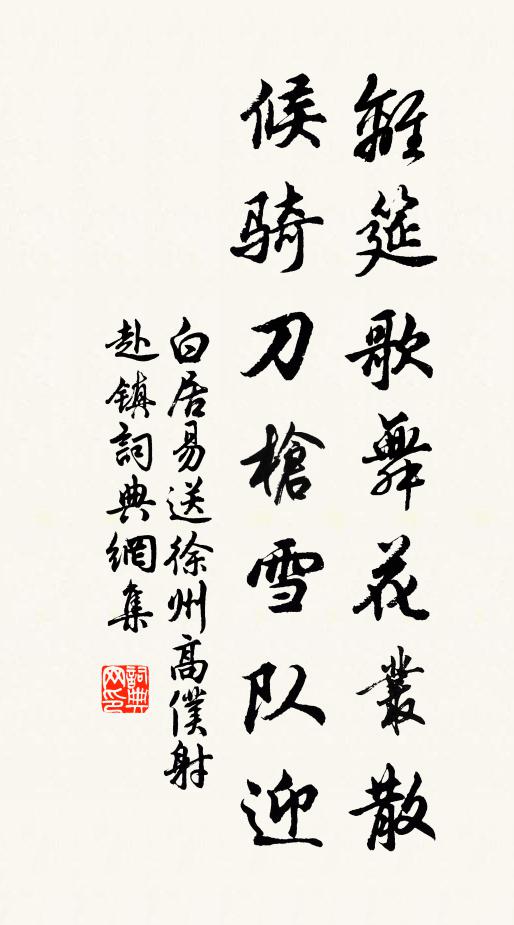 離筵歌舞花叢散
候骑刀槍雪队迎
白居易送徐州高僕射
赴镇詞典網集
詞典
网印